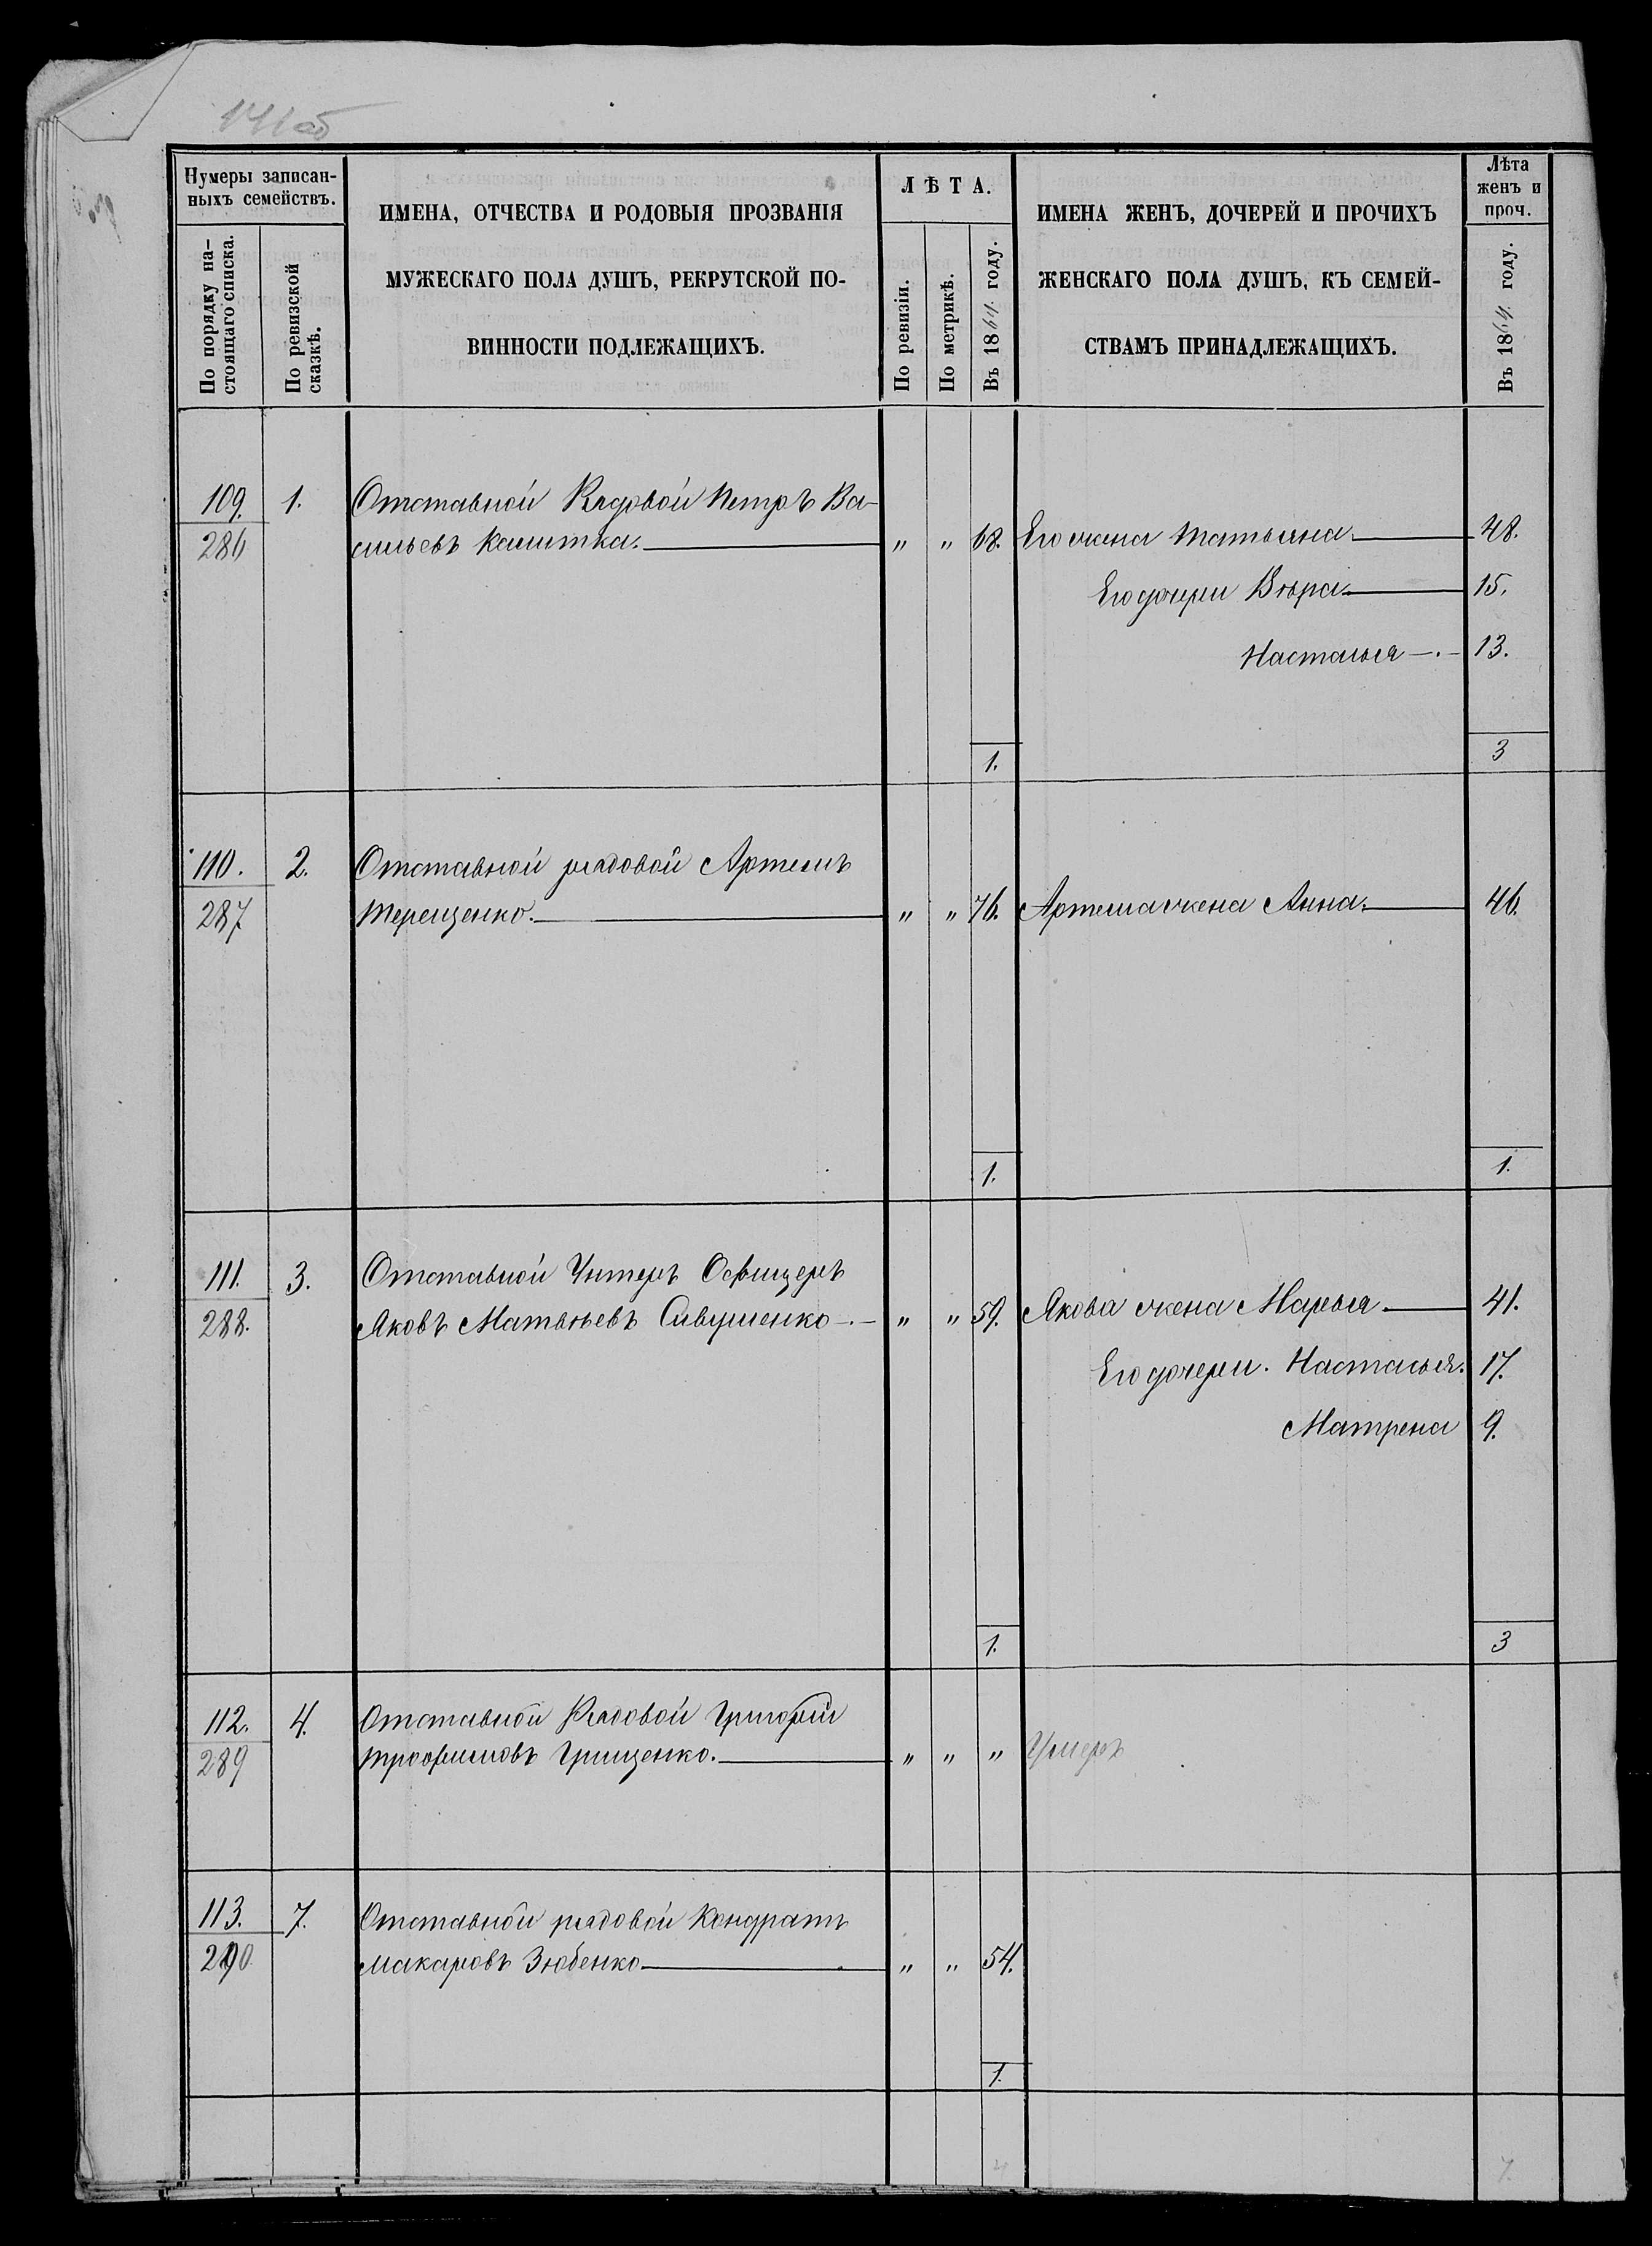 141 об
Нумеры записан-
ныхъ семействъ.
По порядку на-
стоящаго списка.
По ревизской
сказкѣ.
ИМЕНА, ОТЧЕСТВА И РОДОВЫЯ ПРОЗВАНІЯ
МУЖЕСКАГО ПОЛА ДУШЪ, РЕКРУТСКОЙ ПО-
ВИННОСТИ ПОДЛЕЖАЩИХЪ.
ЛѢТА.
По ревизіи.
По метрикѣ.
Въ 1864 году.
ИМЕНА ЖЕНЪ, ДОЧЕРЕЙ И ПРОЧИХЪ
ЖЕНСКАГО ПОЛА ДУШЪ, КЪ СЕМЕЙ-
СТВАМЪ ПРИНАДЛЕЖАЩИХЪ.
Лѣта
женъ и
проч.
Въ 1864 году.
109. 1. Отставной Рядовой Петръ Ва-
286 сильевъ Калитка. " " 68. Его жена Татьяна 48.
Его дочери Вѣра 15.
Настасья 13.
1. 3
110. 2. Отставной рядовой Артемъ
287 Терещенко. " " 76. Артема жена Анна. 46.
1. 1.
111. 3. Отставной Унтеръ Офицеръ
288. Яковъ Матвѣевъ " " 59. Якова жена Марья 41.
Его дочери. Настасья. 17.
Матрена 9.
1. 3
112. 4. Отставной Рядовой Григорій
289 Трофимовъ Грищенко. " " " Умеръ
113. 7. Отставной рядовой Кондратъ
290 Макаровъ Зюбенко " " 54.
1.
4 7.